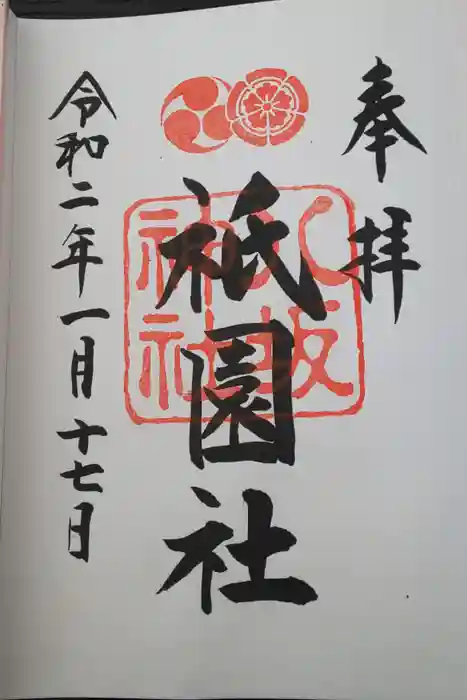 奉拝
八坂
神社
祇園社
令和二年一月十七日